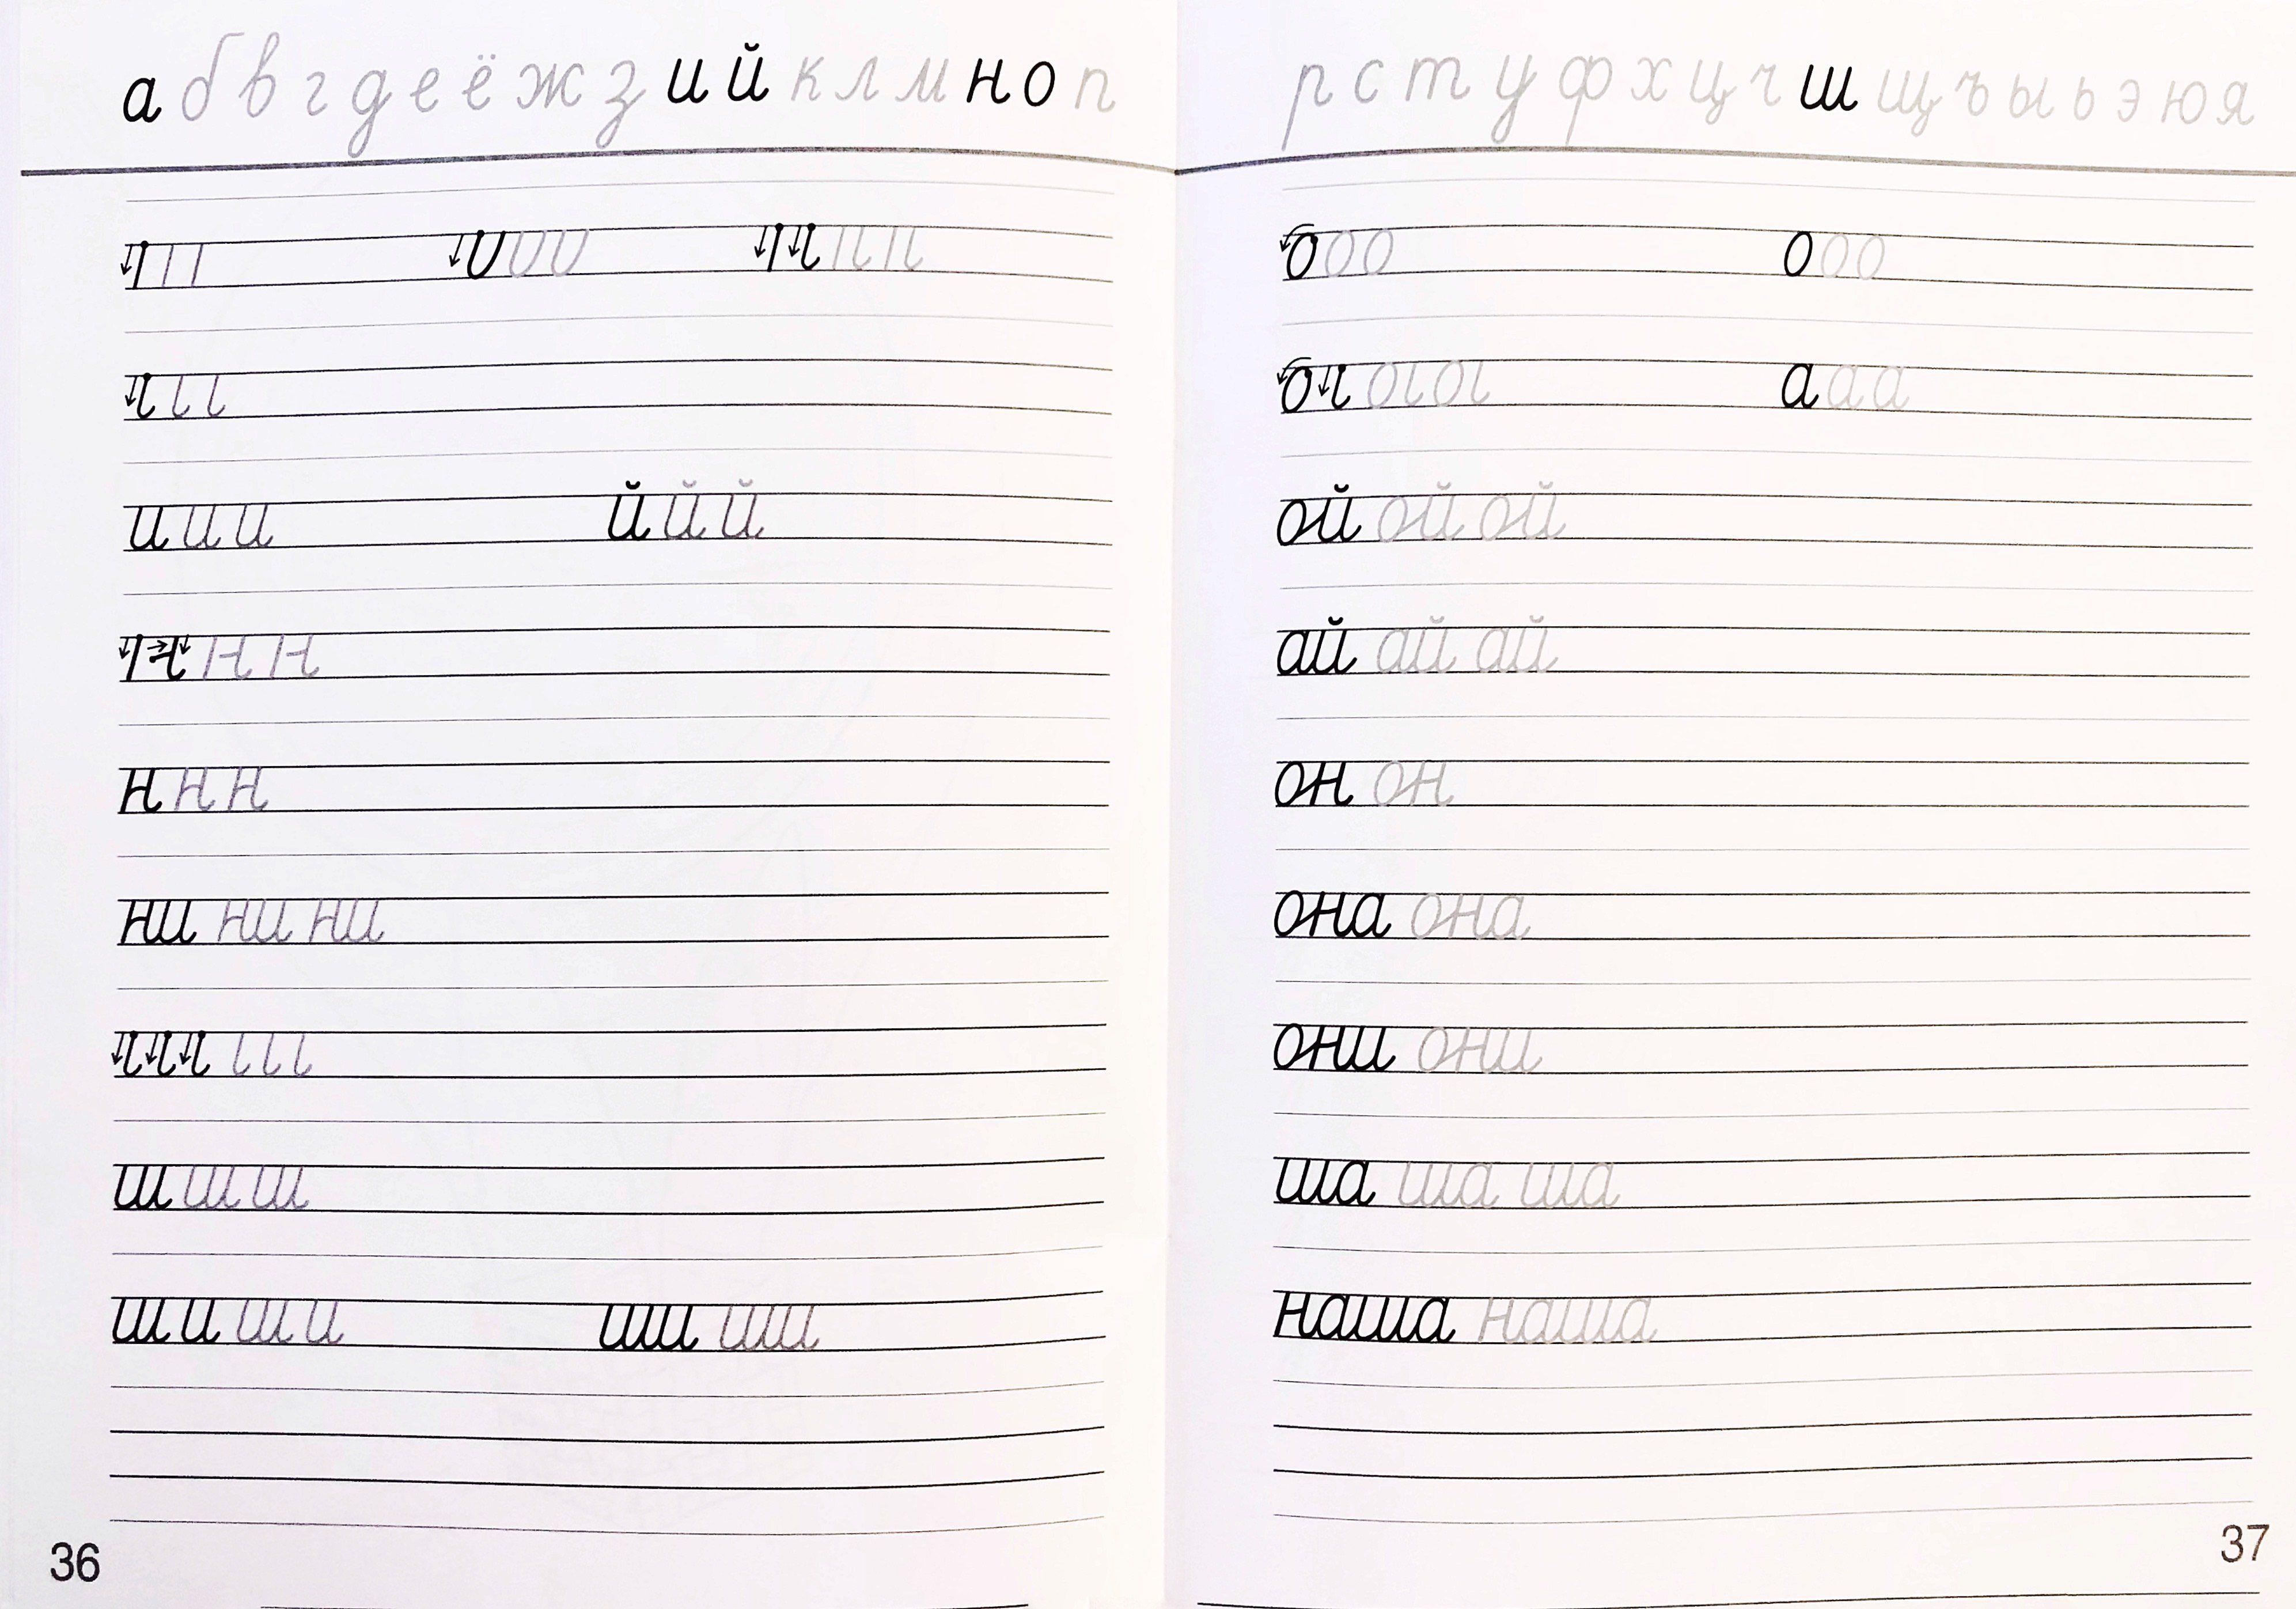 а б в г д е ё ж з и й к л м н о п
и и и й й й
н н н
ни ни ни
ш ш ш
ш и ш и ши ши
36
р с т у ф х ц ч ш щ ъ ы ь э ю я
о о о о о о
а а а
ой ой ой
ай ай ай
он он
она она
они они
ша ша ша
наша наша
37